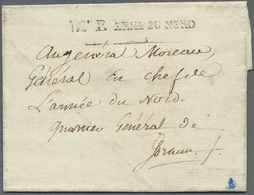 ARMÉE DU NORD
Au général Moreau,
Général En chef de
L'armée du Nord.
Quartier Général de